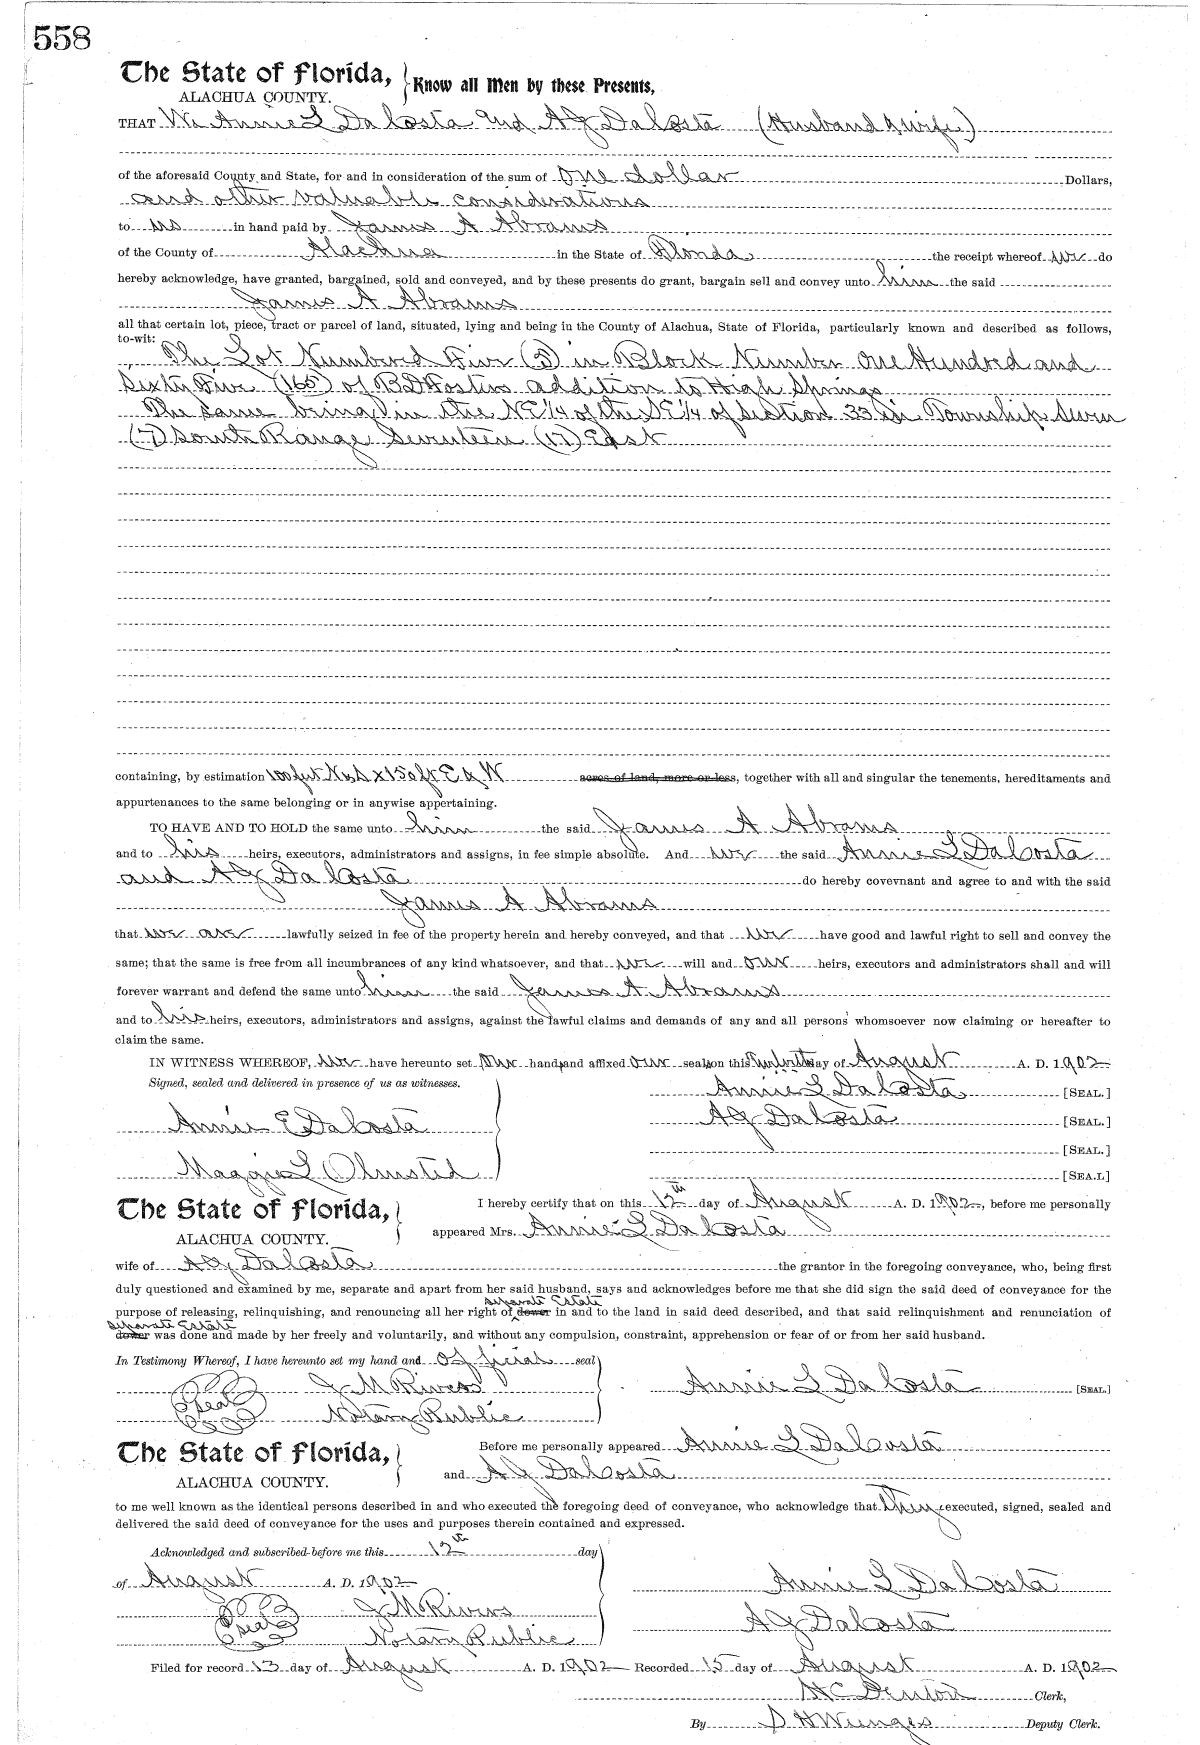 558
The State of Florida,
ALACHUA COUNTY.
Know all Men by these Presents,
THAT We Annie L DaCosta and A J DaCosta (Husband & wife)
of the aforesaid County and State, for and in consideration of the sum of One dollar Dollars,
and other valuable considerations
to us in hand paid by James A Abrams
of the County of Alachua in the State of Florida the receipt whereof we do
hereby acknowledge, have granted, bargained, sold and conveyed, and by these presents do grant, bargain sell and convey unto him the said
James A Abrams
all that certain lot, piece, tract or parcel of land, situated, lying and being in the County of Alachua, State of Florida, particularly known and described as follows,
to-wit:
The Lot Numbered Five (5) in Block Number One Hundred and
Sixty Five (165) of addition to High Springs
The same being in the of the of Section 33 in Township Seven
(7) South Range Seventeen (17) East
containing, by estimation 100 feet N & S x 150 ft E & W acres of land, more or less, together with all and singular the tenements, hereditaments and
appurtenances to the same belonging or in anywise appertaining.
TO HAVE AND TO HOLD the same unto him the said James A Abrams
and to his heirs, executors, administrators and assigns, in fee simple absolute. And we the said Annie L DaCosta
and A J DaCosta do hereby covevnant and agree to and with the said
James A Abrams
that we are lawfully seized in fee of the property herein and hereby conveyed, and that we have good and lawful right to sell and convey the
same; that the same is free from all incumbrances of any kind whatsoever, and that we will and our heirs, executors and administrators shall and will
forever warrant and defend the same unto him the said James A Abrams
and to his heirs, executors, administrators and assigns, against the lawful claims and demands of any and all persons whomsoever now claiming or hereafter to
claim the same.
IN WITNESS WHEREOF, we have hereunto set our hands and affixed our seals on this Twelfth day of August A. D. 1902
Signed, sealed and delivered in presence of us as witnesses.
Annie L DaCosta [SEAL.]
Annie E DaCosta
A J DaCosta [SEAL.]
[SEAL.]
Maggie L Olmsted
[SEA.L]
The State of Florida,
ALACHUA COUNTY.
I hereby certify that on this 12th day of August A. D. 1902, before me personally
appeared Mrs. Annie L DaCosta
wife of A J DaCosta the grantor in the foregoing conveyance, who, being first
duly questioned and examined by me, separate and apart from her said husband, says and acknowledges before me that she did sign the said deed of conveyance for the
separate Estate
purpose of releasing, relinquishing, and renouncing all her right of dower in and to the land in said deed described, and that said relinquishment and renunciation of
separate Estate
dower was done and made by her freely and voluntarily, and without any compulsion, constraint, apprehension or fear of or from her said husband.
In Testimony Whereof, I have hereunto set my hand and official seal
Seal J M Rivers
Annie L DaCosta [SEAL.]
Notary Public
The State of Florida,
ALACHUA COUNTY.
Before me personally appeared Annie L DaCosta
and A J DaCosta
to me well known as the identical persons described in and who executed the foregoing deed of conveyance, who acknowledge that they executed, signed, sealed and
delivered the said deed of conveyance for the uses and purposes therein contained and expressed.
Acknowledged and subscribed before me this 12th day
of August A. D. 1902
Annie L DaCosta
Seal J M Rivers
A J DaCosta
Notary Public
Filed for record 13 day of August A. D. 1902 Recorded 15 day of August A. D. 1902
H C Denton Clerk,
By Deputy Clerk.